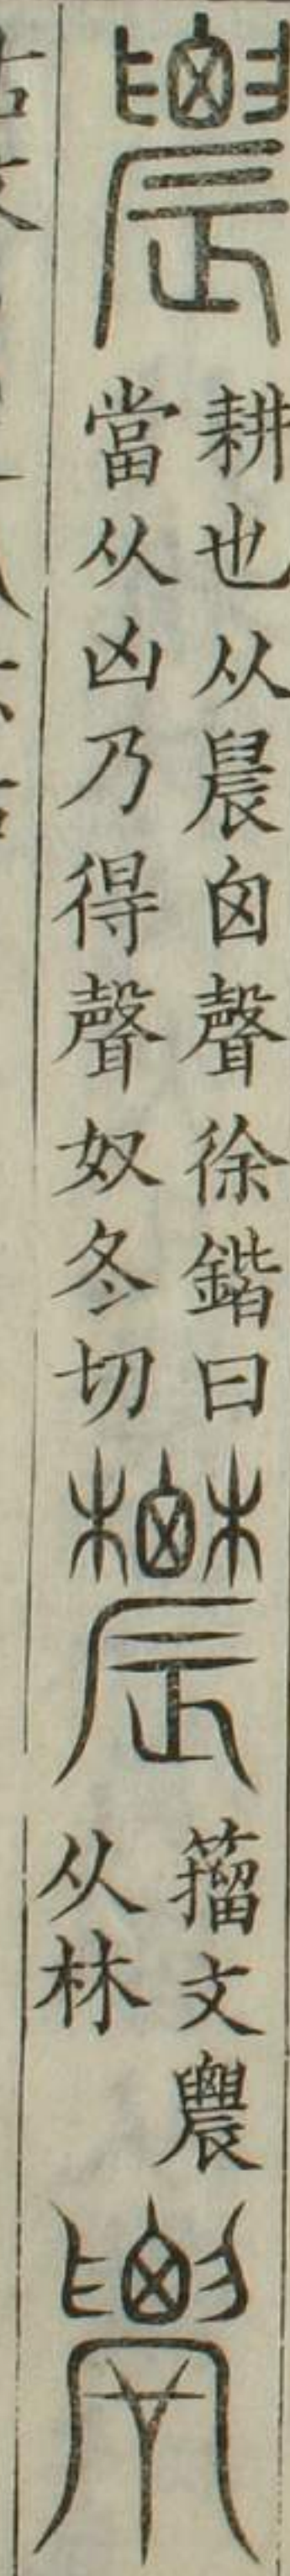 䢉
耕也从䢅囟聲徐鍇曰
當从凶乃得聲奴冬切
𨑋
籒文䢉
从林